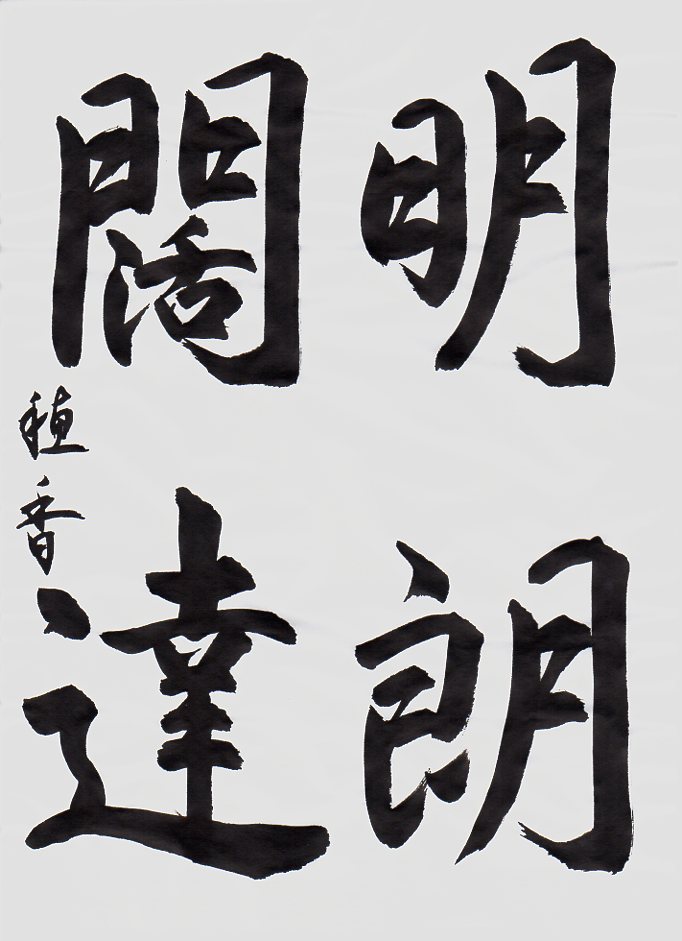 明朗
闊達
穂香